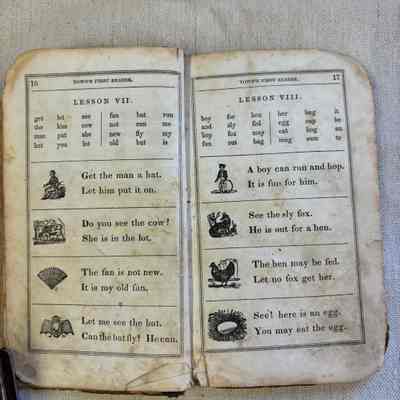 16 TOWN'S FIRST READER.
LESSON VII.
get let see fan hat run
the him cow not can me
man put she new fly my
hat you lot old but is
Get the man a hat.
Let him put it on.
Do you see the cow?
She is in the lot.
The fan is not new.
It is my old fan.
Let me see the bat.
Can the bat fly? He can.
TOWN'S FIRST READER. 17
LESSON VIII.
boy for hen her beg it
and sly fed egg may be
hop fox may eat
fun out
A boy can run and hop.
It is fun for him.
See the sly fox.
He is out for a hen.
The hen may be fed.
Let no fox get her.
See! here is an egg.
You may eat the egg.